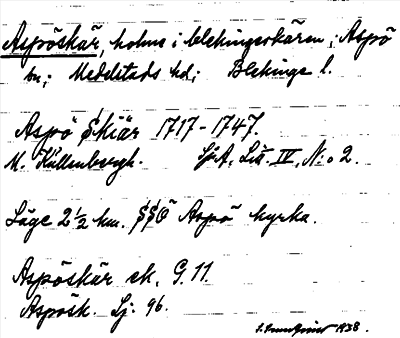 Aspöskär, holme i blekingeskären; Aspö
sn; Medelstads hd; Blekinge l.
Aspö Skiär 1717-1747.
M. Kullenbergh. SjA, Litt. IV, N:o 2.
Läge 2½ km. SSÖ Aspö kyrka.
Aspöskär ek. G. 11.
Aspösk. Sj. 96.
1938.